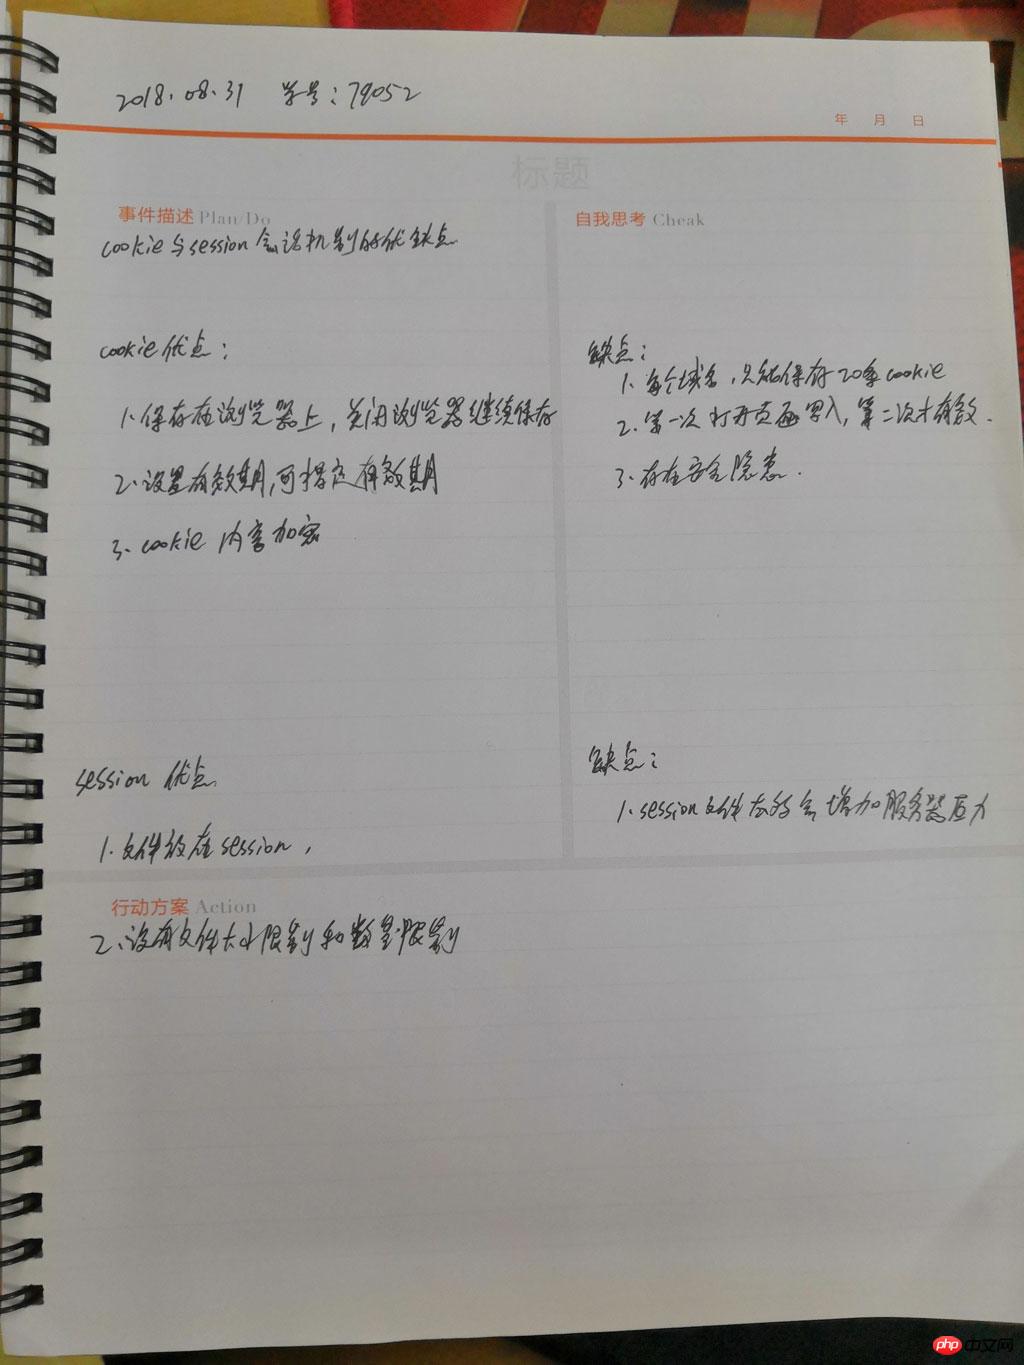 2018.08.31 学号：79052
年 月 日
标题
事件描述 Plan/Do
cookie与session会话机制的优缺点
cookie优点：
1.保存在浏览器上，关闭浏览器继续保存
2.设置有效期，可指定有效期
3.cookie 内容加密
session 优点
1.文件放在session，
自我思考 Cheak
缺点：
1.每个域名，只能保存20条cookie
2.第一次打开页面写入，第二次才有效.
3.存在安全隐患.
缺点：
1.session文件太多会增加服务器压力
行动方案 Action
2.没有文件大小限制和数量限制
php中文网